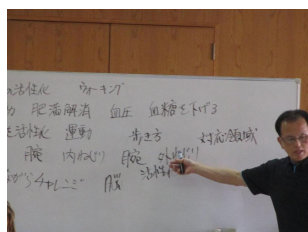 活性化 ウォーキング
肥満解消 血圧 血糖を下げる
を活性化 運動 歩き方 対応領域
腕 内ねじり 腕 外ねじり
ながらチャレンジ 脳 活性